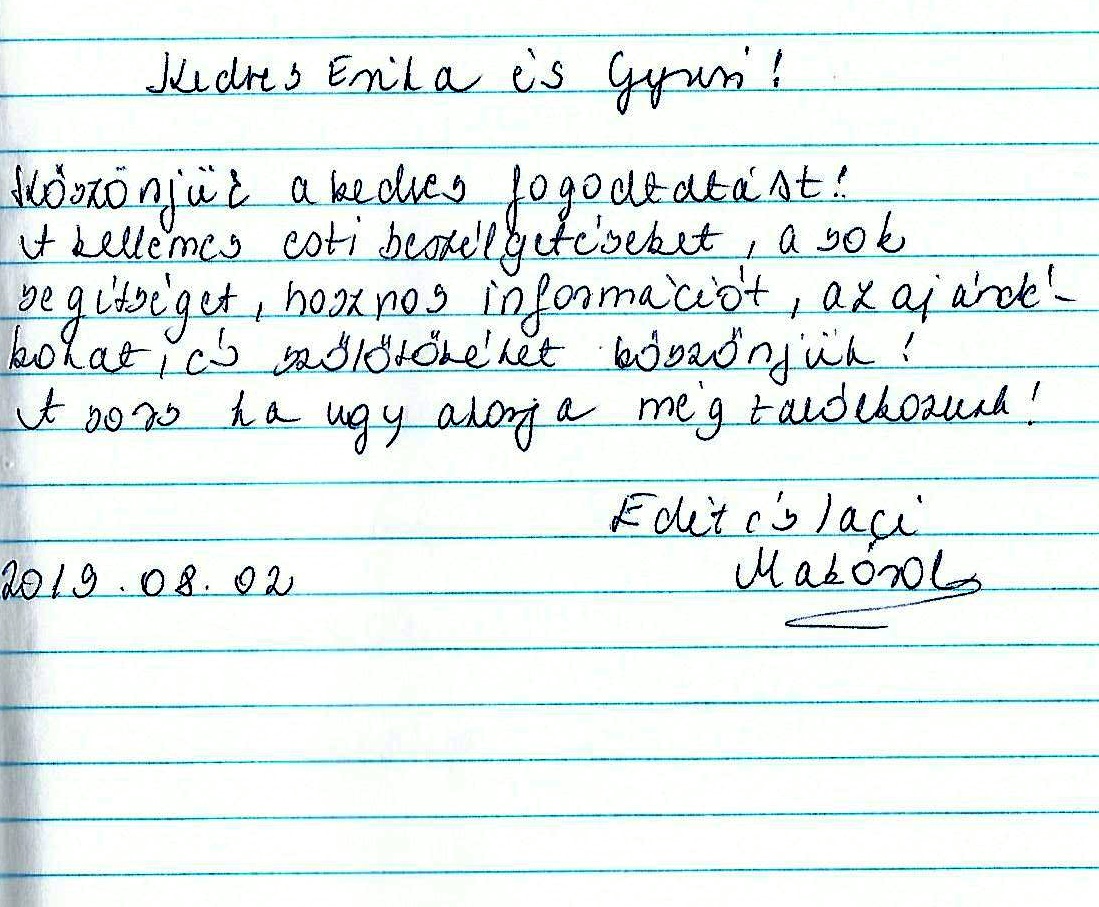 Kedves Enika és Gyuri!
Köszönjük a kedves fogodtatást!
A kellemes esti beszélgetéseket, a sok
segítséget, hasznos információt, az ajándé-
kokat, és szőlőtőkéket köszönjük!
A sors ha ugy akarja még találkozunk!
Edit és laci
Makóról
2019.08.02